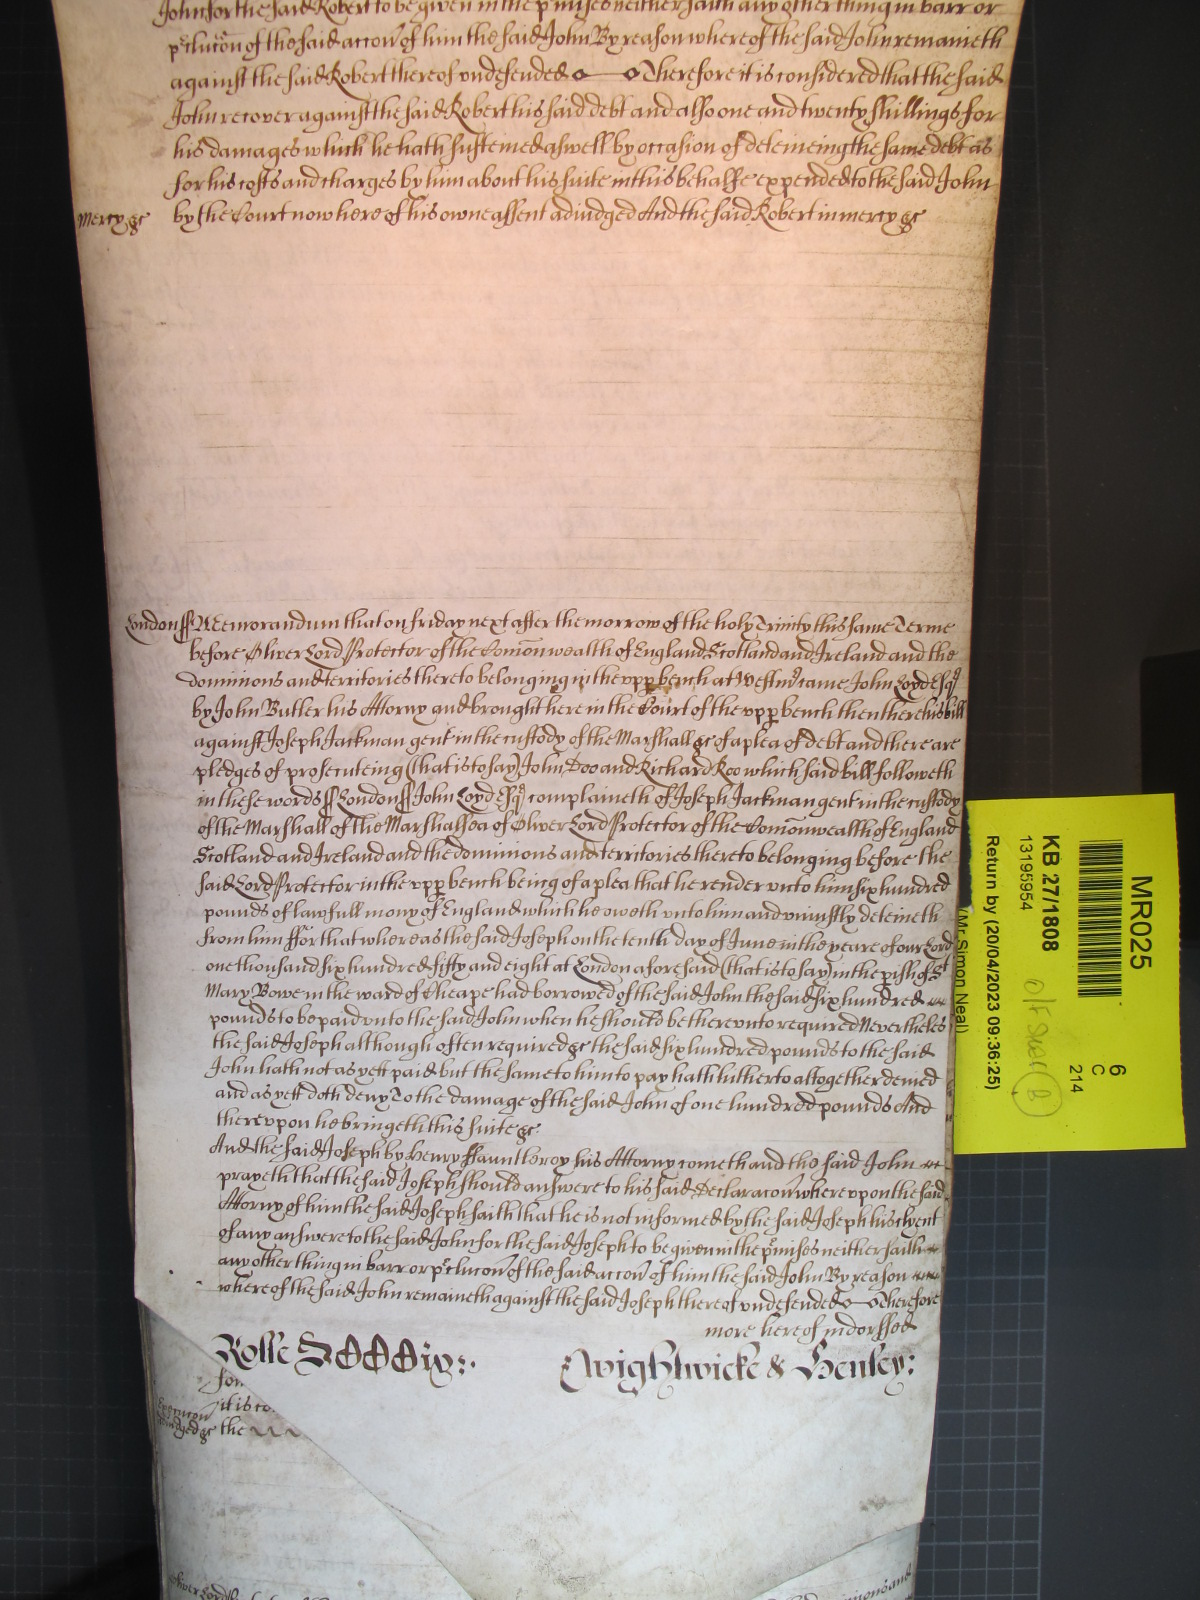 John for the said Robert to be given in the p'mises neither saith any other thing in barr or
p'clucon of the said accon of him the said John By reason whereof the said John remanieth
against the said Robert thereof undefended Therefore it is considered that the said
John recover against the said Robert his said debt and also one and twenty shillings for
his damages which he hath susteined aswell by occasion of deteineing the same debt as
for his costs and charges by him about his suite in this behalfe expended to the said John
Mercy &c by the Court now here of his owne assent adiudged And the said Robert in mercy &c
London ss Memorandum that on friday next after the morrow of the holy Trinity this same Terme
before Oliver Lord Protector of the Comonwealth of England Scotland and Ireland and the
dominions and territories thereto belonging in the upp bench at Westmr came John Loyd Esqr
by John Butler his Attorny and brought here in the Court of the upp bench then there his bill
against Joseph Jackman gent in the custody of the Marshall &c of a plea of debt and there are
pledges of prosecuteing (that is to say) John Doo and Richard Roo which said bill followeth
in these words ss London ss John Loyd Esqr complaineth of Joseph Jackman gent in the custody
of the Marshall of the Marshalsea of Oliver Lord Protector of the Comonwealth of England
Scotland and Ireland and the dominions and territories thereto belonging before the
said Lord Protector in the upp bench being of a plea that he render unto him six hundred
pounds of lawfull mony of England which he oweth unto him and uniustly deteineth
from him ffor that whereas the said Joseph on the tenth day of June in the yeare of our Lord
one thousand six hundred fifty and eight at London aforesaid (that is to say) in the pish of St
Mary Bowe in the ward of Cheape had borrowed of the said John the said six hundred
pounds to be paid unto the said John when he should be thereunto required Nevertheles
the said Joseph although often required &c the said six hundred pounds to the said
John hath not as yett paid but the same to him to pay hath hitherto altogether denied
and as yett doth deny To the damage of the said John of one hundred pounds And
thereupon he bringeth this suite &c
And the said Joseph by Henry ffauntleroy his Attorny cometh and the said John
prayeth that the said Joseph should answere to his said Declaracon whereupon the said
Attorny of him the said Joseph saith that he is not informed by the said Joseph his clyent
of any answere to the said John for the said Joseph to be given in the p'mises neither saith
any other thing in barr or p'clucon of the said accon of him the said John By reason
whereof the said John remaineth against the said Joseph thereof undefended Therefore
more hereof indorssed
Rolle DCCCCix:. Wightwicke & Henley:
it is co
the
MR025
6
C
214
KB 27/1808
13195954
Return by (20/04/2023 09:36:25)
(Mr Simon Neal)